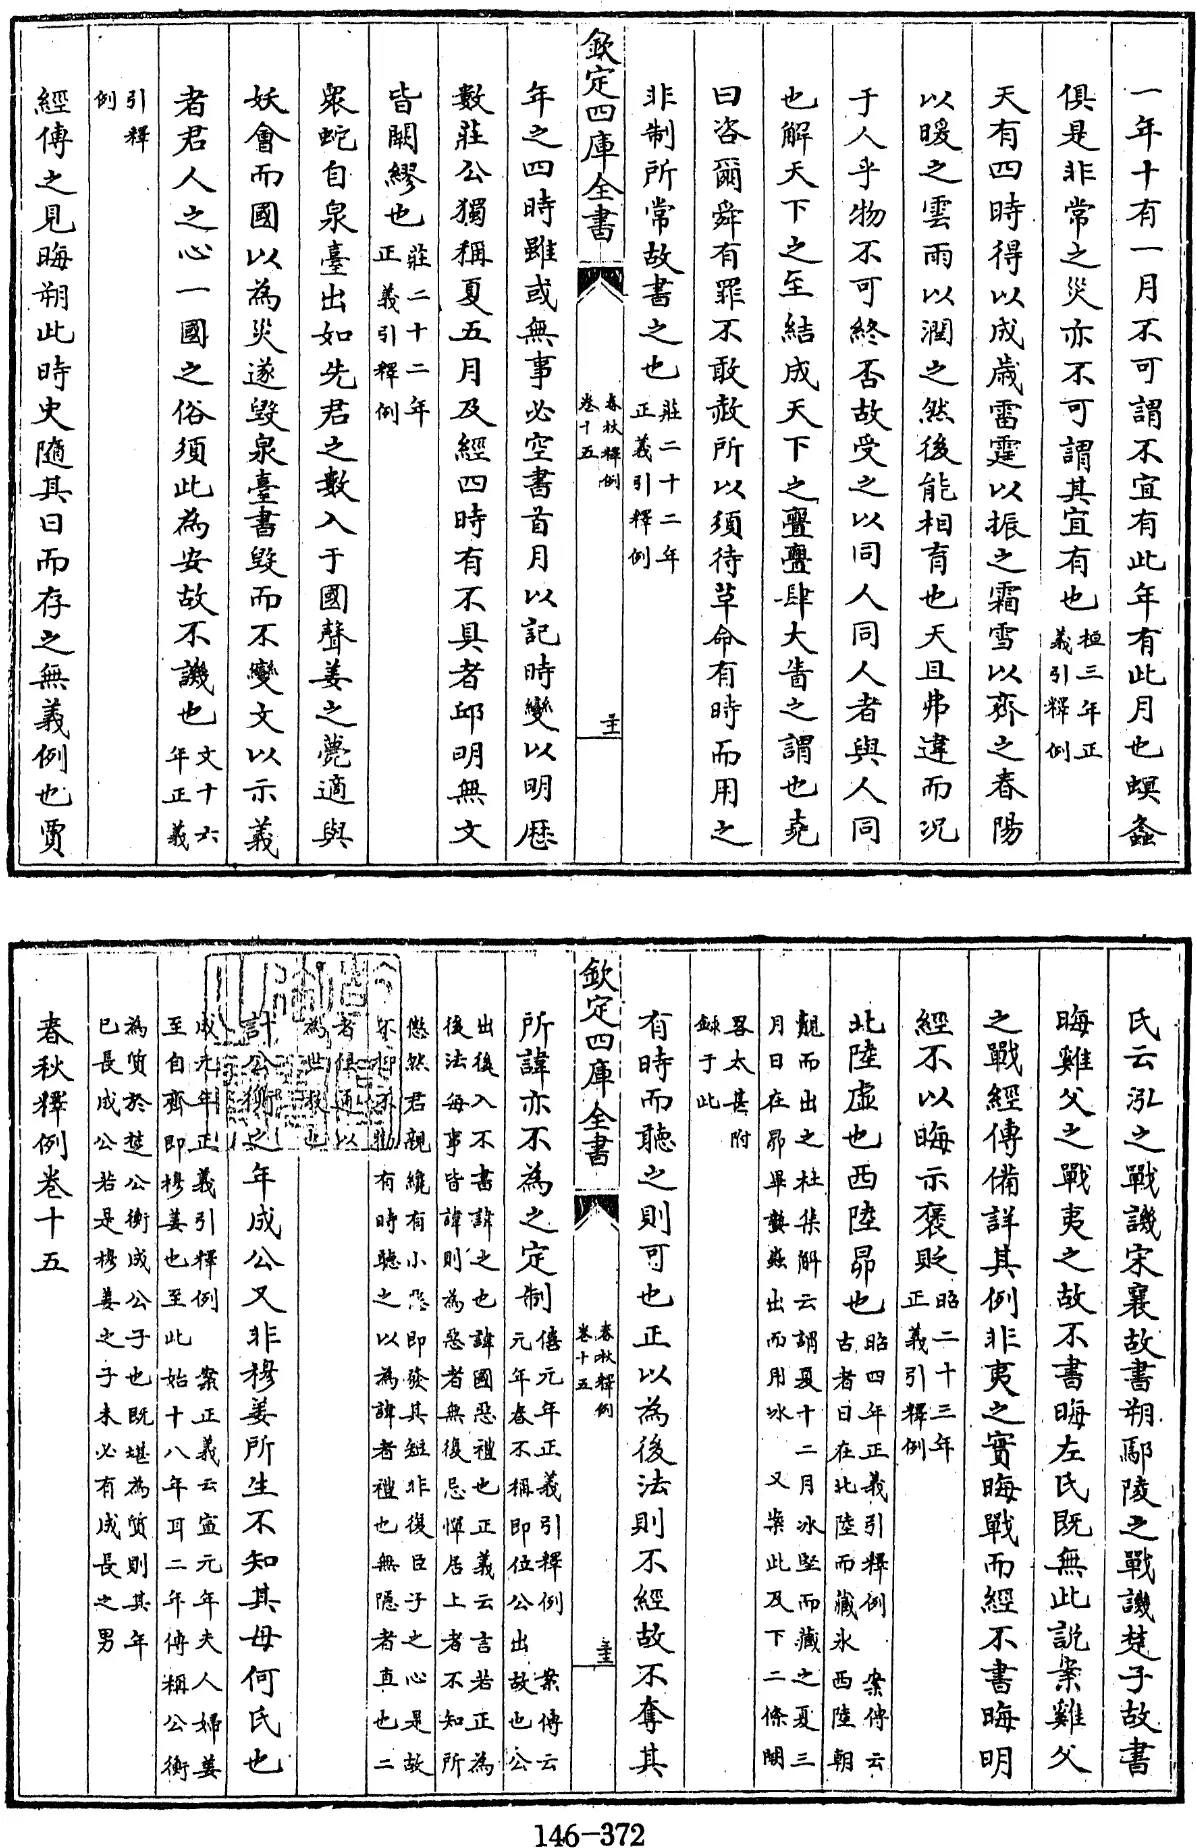 一年十有一月不可謂不宜有此年有此月也螟螽
俱是非常之災亦不可謂其宜有也桓三年正
義引釋例
天有四時得以成歲雷霆以振之霜雪以齊之春陽
以暖之雲雨以潤之然後能相育也天且弗違而況
于人乎物不可終否故受之以同人同人者與人同
也解天下之至結成天下之亹亹肆大眚之謂也堯
曰咨爾舜有罪不敢赦所以須待革命有時而用之
非制所常故書之也莊二十二年
正義引釋例
欽定四庫全書
春秋釋例
卷十五
年之四時雖或無事必空書首月以記時變以明歷
數莊公獨稱夏五月及經四時有不具者邱明無文
皆闕繆也莊二十二年
正義引釋例
衆蛇自泉臺出如先君之數入于國聲姜之薨適與
妖會而國以為災遂毀泉臺書毀而不變文以示義
者君人之心一國之俗須此為安故不譏也文十六
年正義
引釋
例
經傳之見晦朔此時史隨其日而存之無義例也賈
氏云泓之戰譏宋襄故書朔鄢陵之戰譏楚子故書
晦雞父之戰夷之故不書晦左氏既無此說案雞父
之戰經傳備詳其例非夷之實晦戰而經不書晦明
經不以晦示褒貶昭二十三年
正義引釋例
北陸虛也西陸昴也昭四年正義引釋例 案傳云
古者日在北陸而藏氷西陸朝
覿而出之杜集解云謂夏十二月氷堅而藏之夏三
月日在昴畢蟄蟲出而用氷 又案此及下二條闕
畧太甚附
録于此
有時而聽之則可也正以為後法則不經故不奪其
欽定四庫全書
春秋釋例
卷十五
所諱亦不為之定制僖元年正義引釋例 案傳云
元年春不稱即位公出故也公
出復入不書諱之也諱國惡禮也正義云言若正為
後法每事皆諱則為惡者無復忌憚居上者不知所
懲然君親纔有小惡即發其短非復臣子之心是故
不抑不勸有時聽之以為諱者禮也無隱者直也二
者俱通以
為世教也
計公衡之年成公又非穆姜所生不知其母何氏也
成元年正義引釋例 案正義云宣元年夫人婦姜
至自齊即穆姜也至此始十八年耳二年傳稱公衡
為質於楚公衡成公子也既堪為質則其年
已長成公若是穆姜之子未必有成長之男
春秋釋例卷十五
146-372